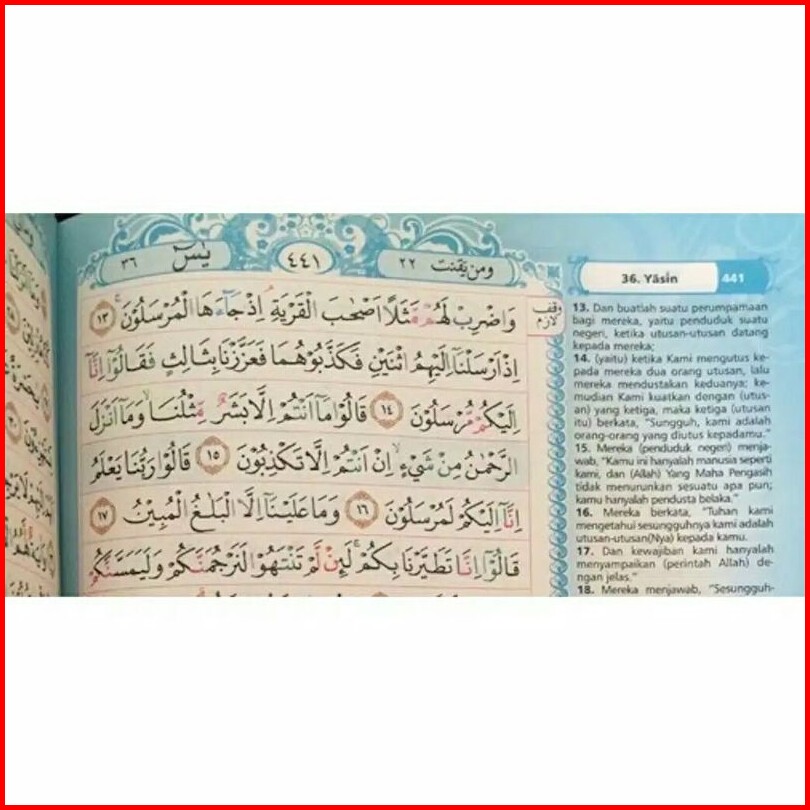 يٰسۤ ٣٦
٤٤١
ومن يقنت ٢٢
وَاضْرِبْ لَهُمْ مَّثَلًا اَصْحٰبَ الْقَرْيَةِۘ اِذْ جَاۤءَهَا الْمُرْسَلُوْنَۚ ١٣
وقف لازم
اِذْ اَرْسَلْنَآ اِلَيْهِمُ اثْنَيْنِ فَكَذَّبُوْهُمَا فَعَزَّزْنَا بِثَالِثٍ فَقَالُوْٓا اِنَّآ
اِلَيْكُمْ مُّرْسَلُوْنَ ١٤ قَالُوْا مَآ اَنْتُمْ اِلَّا بَشَرٌ مِّثْلُنَاۙ وَمَآ اَنْزَلَ
الرَّحْمٰنُ مِنْ شَيْءٍۙ اِنْ اَنْتُمْ اِلَّا تَكْذِبُوْنَ ١٥ قَالُوْا رَبُّنَا يَعْلَمُ
اِنَّآ اِلَيْكُمْ لَمُرْسَلُوْنَ ١٦ وَمَا عَلَيْنَآ اِلَّا الْبَلٰغُ الْمُبِيْنُ ١٧
قَالُوْٓا اِنَّا تَطَيَّرْنَا بِكُمْۚ لَىِٕنْ لَّمْ تَنْتَهُوْا لَنَرْجُمَنَّكُمْ وَلَيَمَسَّنَّكُمْ
36. Yāsīn 441
13. Dan buatlah suatu perumpamaan
bagi mereka, yaitu penduduk suatu
negeri, ketika utusan-utusan datang
kepada mereka;
14. (yaitu) ketika Kami mengutus ke-
pada mereka dua orang utusan, lalu
mereka mendustakan keduanya; ke-
mudian Kami kuatkan dengan (utus-
an) yang ketiga, maka ketiga (utusan
itu) berkata, "Sungguh, kami adalah
orang-orang yang diutus kepadamu."
15. Mereka (penduduk negeri) menja-
wab, "Kamu ini hanyalah manusia seperti
kami, dan (Allah) Yang Maha Pengasih
tidak menurunkan sesuatu apa pun;
kamu hanyalah pendusta belaka."
16. Mereka berkata, "Tuhan kami
mengetahui sesungguhnya kami adalah
utusan-utusan(Nya) kepada kamu.
17. Dan kewajiban kami hanyalah
menyampaikan (perintah Allah) de-
ngan jelas."
18. Mereka menjawab, "Sesungguh-